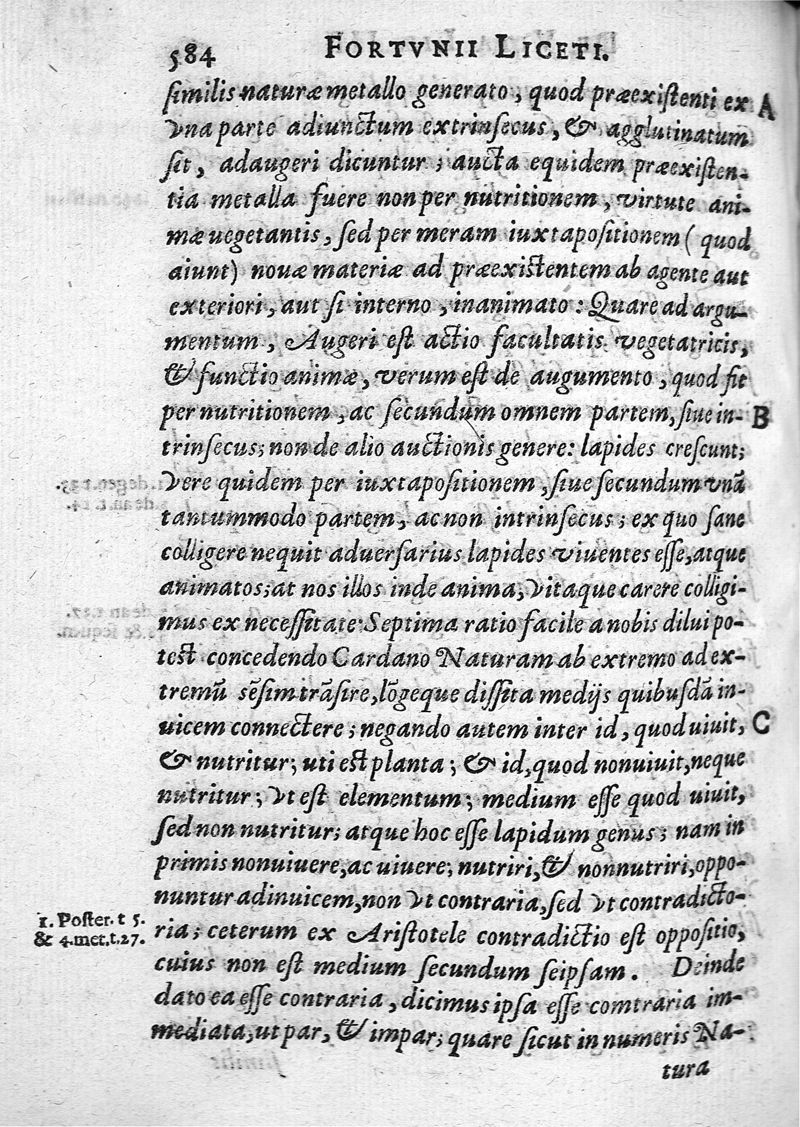 584 FORTVNII LICETI.
similis naturæ metallo generato, quod præexistenti ex A
vna parte adiunctum extrinsecus, & agglutinatum
sit, adaugeri dicuntur; aucta equidem præexisten-
tia metalla fuere non per nutritionem, virtute ani-
mæ uegetantis, sed per meram iuxtapositionem (quod
aiunt) nouæ materiæ ad præexistentem ab agente aut
exteriori, aut si interno, inanimato: Quare ad argu-
mentum, Augeri est actio facultatis vegetatricis,
& functio animæ, verum est de augumento, quod fit
per nutritionem, ac secundum omnem partem, siue in- B
trinsecus; non de alio auctionis genere: lapides crescunt;
vere quidem per iuxtapositionem, siue secundum vnã
tantummodo partem, ac non intrinsecus; ex quo sane
colligere nequit aduersarius lapides viuentes esse, atque
animatos; at nos illos inde anima, vitaque carere colligi-
mus ex necessitate. Septima ratio facile a nobis dilui po-
test concedendo Cardano Naturam ab extremo ad ex-
tremũ sẽsim trãsire, lõgeque dissita medijs quibusdã in-
uicem connectere; negando autem inter id, quod uiuit, C
& nutritur; uti est planta; & id, quod non uiuit, neque
nutritur; vt est elementum; medium esse quod uiuit,
sed non nutritur; atque hoc esse lapidum genus; nam in
primis non uiuere, ac uiuere; nutriri, & non nutriri, oppo-
nuntur adinuicem, non vt contraria, sed vt contradicto-
1. Poster. t 5.
& 4. met. t. 27.
ria; ceterum ex Aristotele contradictio est oppositio,
cuius non est medium secundum seipsam. Deinde
dato ea esse contraria, dicimus ipsa esse comtraria im-
mediata, ut par, & impar; quare sicut in numeris Na-
tura